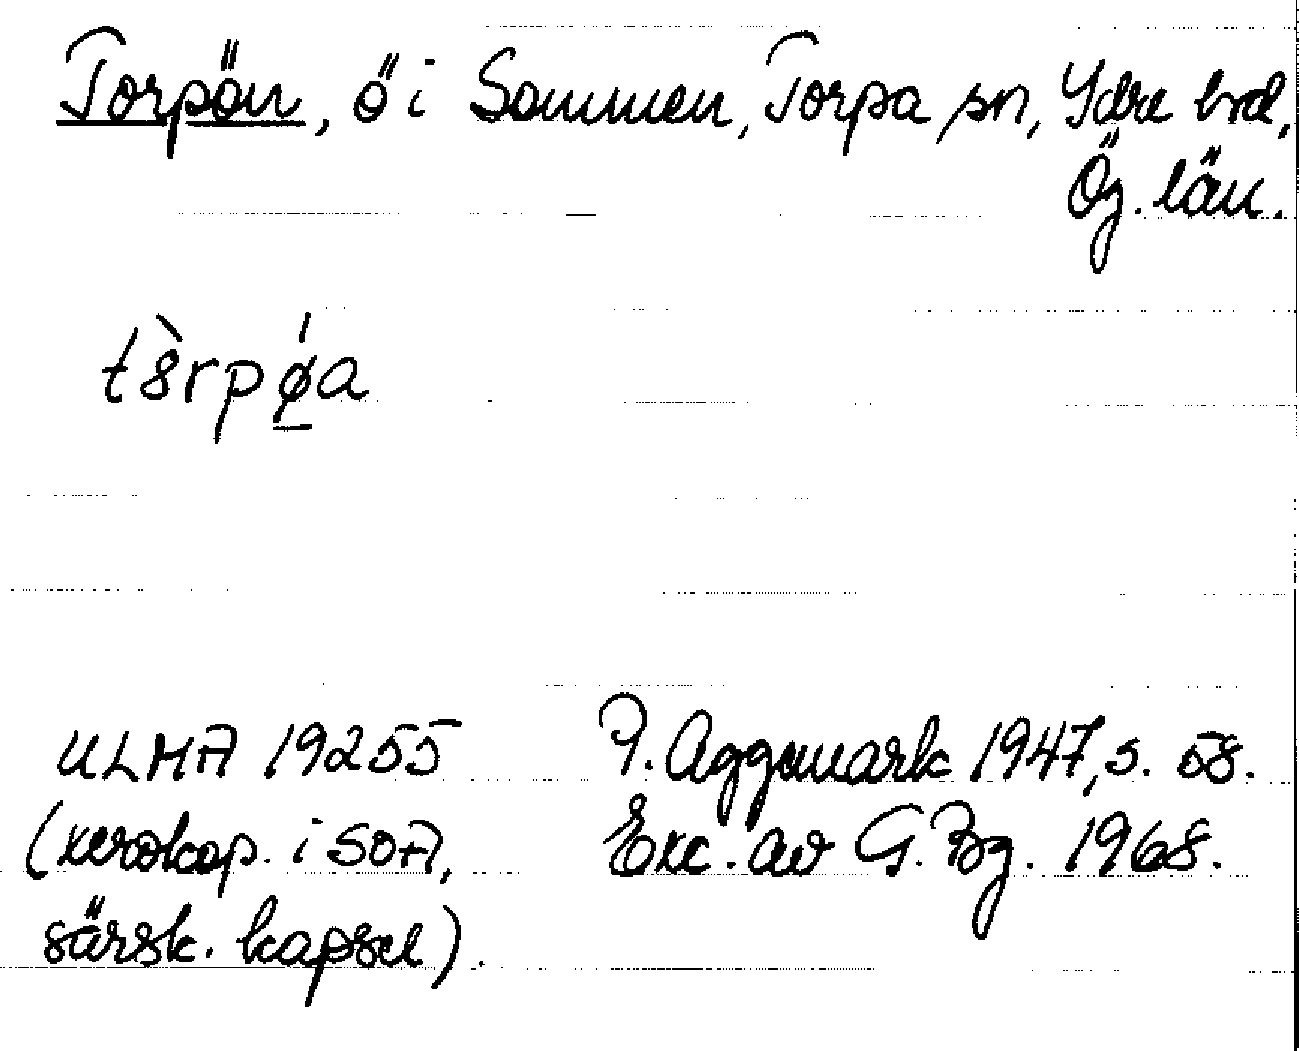 Torpön, ö i Sommen, Torpa sn, Ydre hd,
Ög. län.
t8̀rpǿ̠a
ULMA 19255 P. Aggemark 1947, s. 58.
(xerokop. i SOA, Exc. av G. Bg. 1968.
särsk. kapsel).